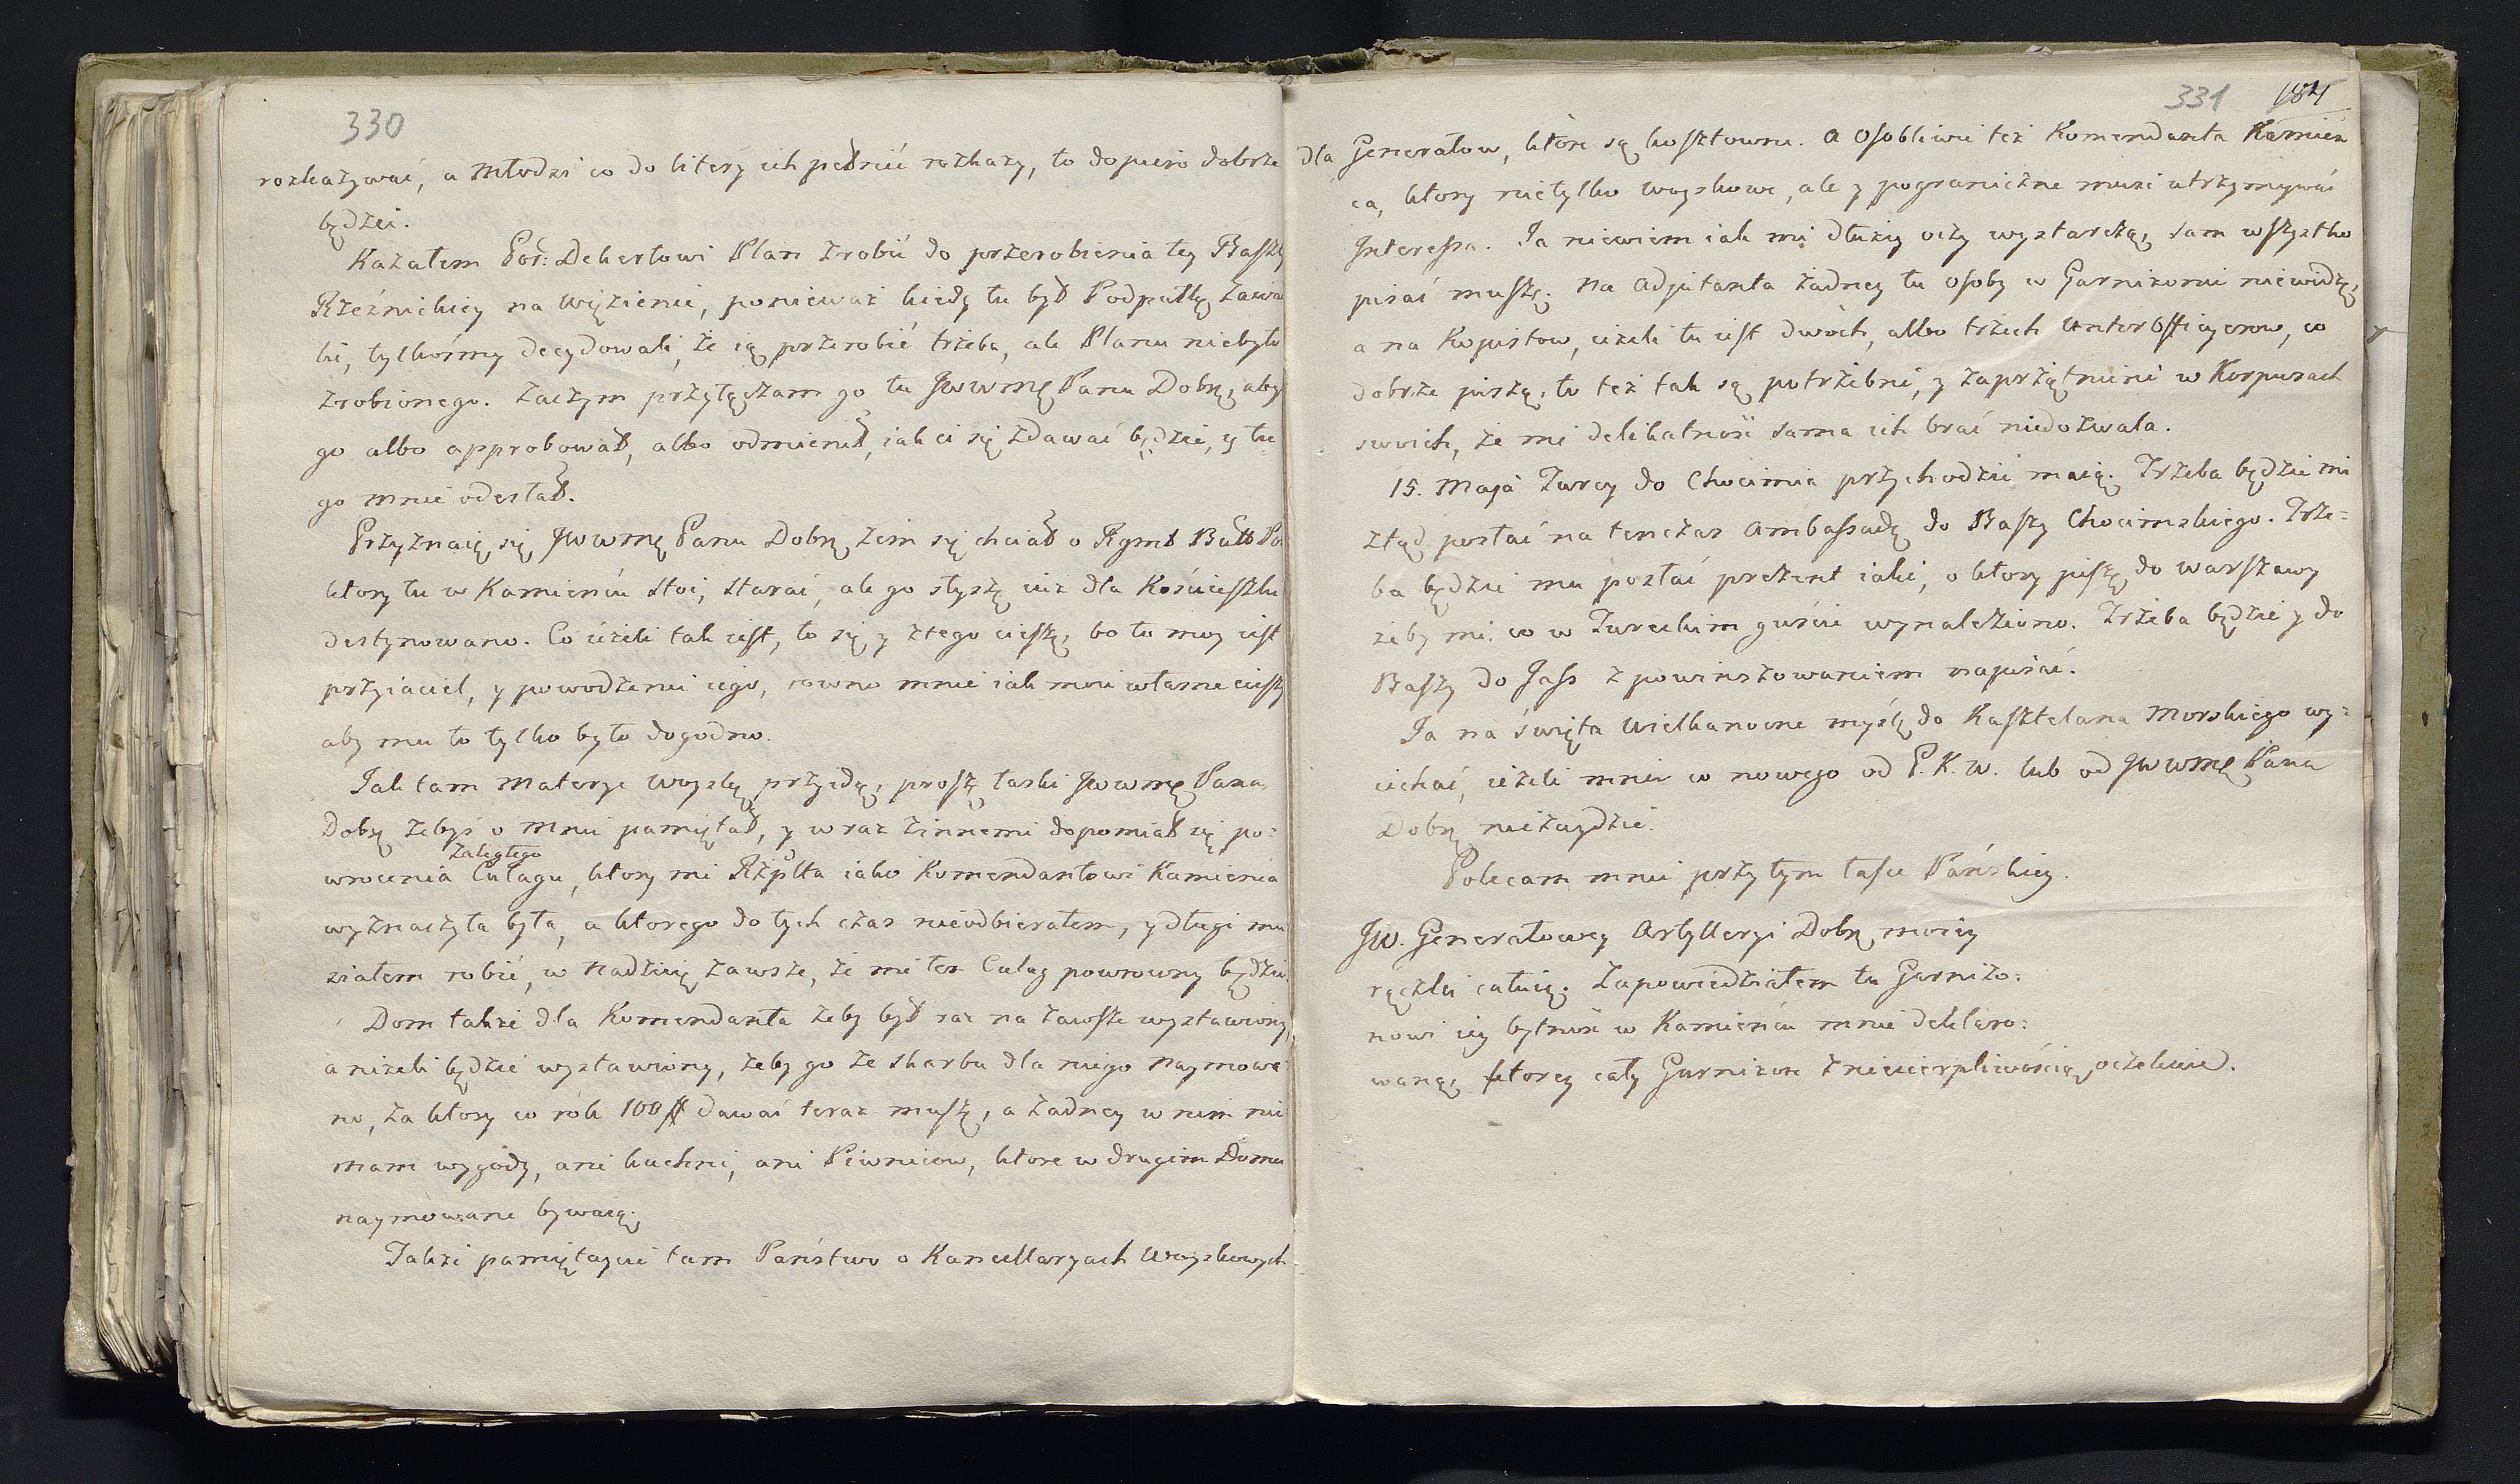 330
rozkazywać, a Młodzi co do litery ich pełnić rozkazy, to dopiero dobrze
będzie.
Kazałem Por: Dekertowi Plan zrobić do przerobienia tey Baszty
Rzeźnickiey na Więzienie, ponieważ kiedy tu był Podpułk Zawa
ki, tylkośmy decydowali, że ią przerobić trzeba, ale Planu niebyło
zrobionego. Zaczym przyłączam go tu JWWMę Panu Dobrę, abyś
go albo approbował, albo odmienił, iak ci się zdawać będzie, y tu
go mnie odesłał.
Przyznaię się JWWMę Panu Dobrę żem się chciał o Rgmt Bułł Po
ktory tu w Kamieńcu stoi, starać, ale go słyszę iuż dla Kościuszki
destynowano. Co ieżeli tak iest, to się y z tego cieszę, bo to moy iest
przyiaciel, y powodzenie iego, rowno mnie iak moie własne cieszy
aby mu to tylko było dogodno.
Jak tam Materye Woyskę przyidą, proszę łaski JWWMę Pana
Dobrę żebyś o mnie pamiętał, y wraz z innemi dopomiał się po=
zaległego
wrocenia Culagu, ktory mi Rzplta iako Komendantowi Kamieńca
wyznaczyła była, a ktorego do tych czas nieodbierałem, y długi mu
siałem robić, w nadzieię zawsze, że mi ten Culag powrowny będzie.
Dom także dla Komendanta żeby był raz na zawsze wystawiony,
a nieżeli będzie wystawiony, żeby go ze skarbu dla niego naymowa
no, za ktory co rok 100 # dawać teraz muszę, a żadney w nim nie
mam wygody, ani kuchni, ani Piwnicow, ktore w drugim Domu
naymowane bywaią.
Także pamiętaycie tam Państwo o Kancellaryach Woyskowych
331 184
dla Generałow, ktore są kosztowne. A Osobliwie też Komendanta Kamień
ca, ktory nietylko woyskowe, ale y pograniczne musi utrzymywać
Interessa. Ja niewiem iak mi dłużey oczy wystarczą, sam wszystko
pisać muszę. Na Adjutanta żadney tu osoby w Garnizonie niewidzę,
a na Kopistow, ieżeli tu iest dwoch, albo trzech UnterOfficyerow, co
dobrze piszą, to też tak są potrzebni, y zaprzątnieni w Korpusach
swoich, że mi delikatność sama ich brać niedozwala.
15. Maja Turcy do Chocimia przychodzić maią. Trzeba będzie mi
ztąd posłać na tenczas Ambassadę do Baszy Chocimskiego. Trze=
ba będzie mu posłać prezent iaki, o ktory piszę do Warszawy
żeby mi co w Tureckim guście wynaleziono. Trzeba będzie y do
Baszy do Jass z powinszowaniem napisać.
Ja na święta Wielkanocne myślę do Kasztelana Morskiego wy=
iechać, ieżeli mnie co nowego od P. K. W. lub od JWWMę Pana
Dobrę niezaydzie.
Polecam mnie przy tym łasce Pańskiey.
JW. Generałowey Artylleryi Dobrę moiey
rączki całuię. Zapowiedziałem tu Garnizo=
nowi iey bytność w Kamieńcu mnie deklaro=
waną, ktorey cały Garnizon z niecierpliwością oczekuie.